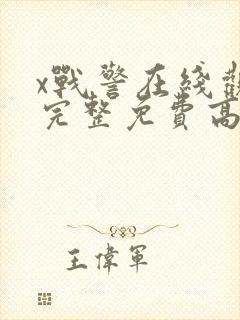 x戰警在綫觀
完整免費高
王偉軍